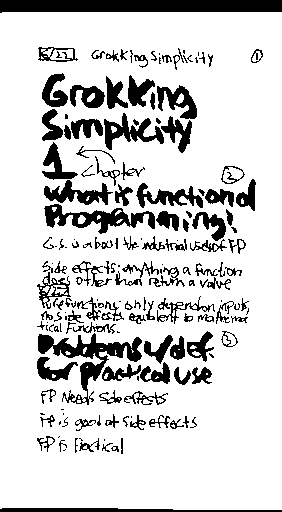 6/27. Grokking Simplicity ①
Grokking
Simplicity
1 Chapter
What is functional ②
Programming!
G.S. is about the industrial uses of FP
Side effects: anything a function
does other than return a value
Pure functions: only depend on inputs,
no side effects. equivalent to mathema
tical functions.
Problems w/ def. ③
for practical use
FP Needs Side effects
FP is good at side effects
FP is Practical